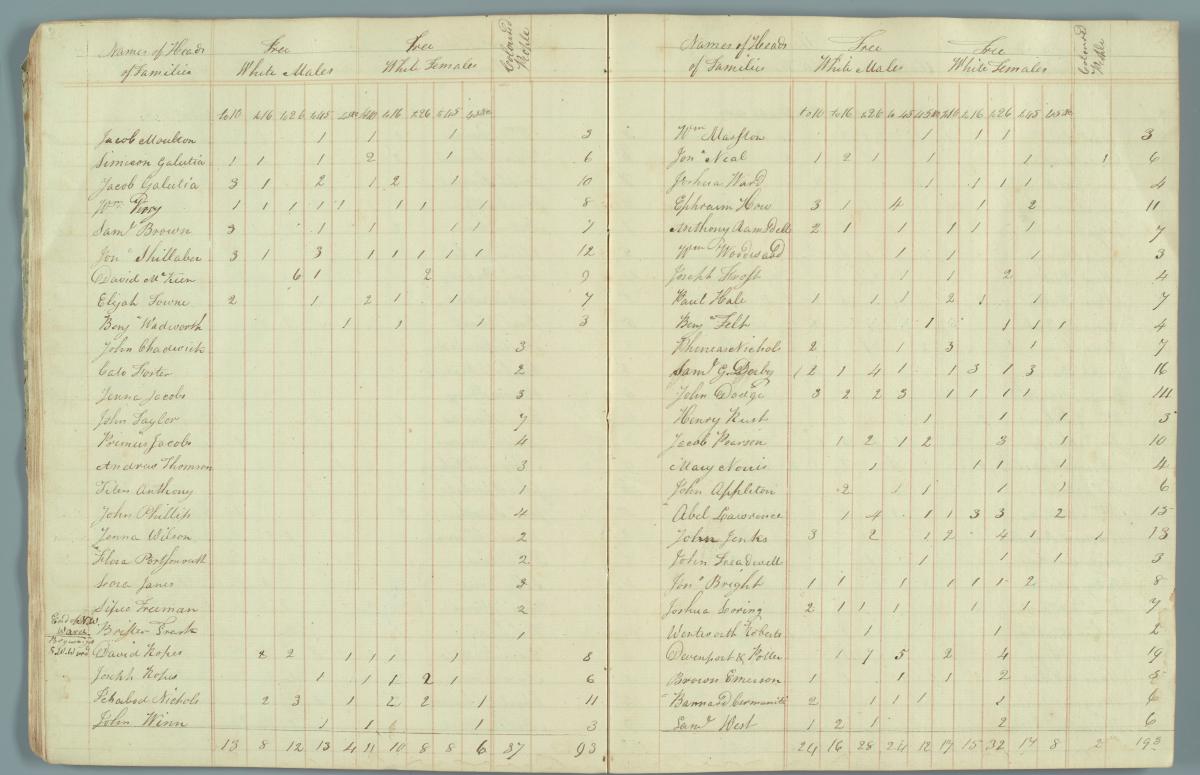 Names of Heads Free Free Coloured
of Families White Males White Females People
to 10 to 16 to 26 to 45 to 10 to 16 to 26 to 45
Jacob Moulton 1 1 1 3
Simieon Galutia 1 1 1 2 1 6
Jacob Galutia 3 1 2 1 2 1 10
Wm Perry 1 1 1 1 1 1 1 1 8
Saml Brown 3 1 1 1 1 7
Jon Shillaber 3 1 3 1 1 1 1 1 12
David McKien 6 1 2 9
Elijah Towne 2 1 2 1 1 7
Benj Wadworth 1 1 1 3
John Chadwick 3
Cato Foster 2
Jenna Jacobs 3
John Taylor 7
Primus Jacobs 4
Andrew Thomson 3
Titus Anthony 1
John Phillips 4
Jenna Wilson 2
Flora Portsmouth 2
Janes
Freeman 2
End of N.W.
Ward Brister 1
S.W. Ward David Ropes 2 2 1 1 1 1 8
Joseph Ropes 1 1 1 2 1 6
Ichabod Nichols 2 3 1 2 2 1 11
John Winn 1 1 1 3
13 8 12 13 4 11 10 8 8 6 37 93
Names of Heads Free Free Coloured
of Families White Males White Females People
to 10 to 16 to 26 to 45 to 10 to 16 to 26 to 45
Wm Masston 1 1 1 3
Jona Neal 1 2 1 1 1 1 6
Joshua Ward 1 1 1 1 4
Ephraim How 3 1 4 1 2 11
Anthony 2 1 1 1 1 1 7
Wm 1 1 1 3
Joseph 1 1 2 4
Paul Hale 1 1 1 2 1 1 7
Benj Felt 1 1 1 1 4
Phineas Nichols 2 1 3 1 7
Saml G. Derby 1 2 1 4 1 1 3 1 3 16
John Dodge 3 2 2 3 1 1 1 1
Henry Rust 1 1 1 3
Jacob Pearson 1 2 1 2 3 1 10
Mary Norris 1 1 1 1 4
John Appleton 2 1 1 1 1 6
Abel Lawrence 1 4 1 1 3 3 2 15
John Jenks 3 2 1 2 4 1 1 13
John Treadwell 1 1 1 3
Jona Bright 1 1 1 1 1 1 2 8
Joshua Loring 2 1 1 1 1 1 7
Wentworth Roberts 1 1 2
Devenport & Potter 1 7 5 2 4 19
Brown Emerson 1 1 1 2 5
Barnard 2 1 1 1 1 6
Saml West 1 2 1 2 6
24 16 28 24 12 17 15 32 17 8 2 193